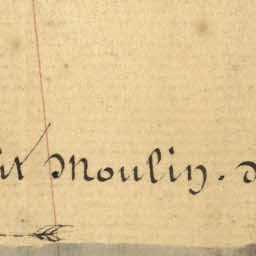 it Moulin. d